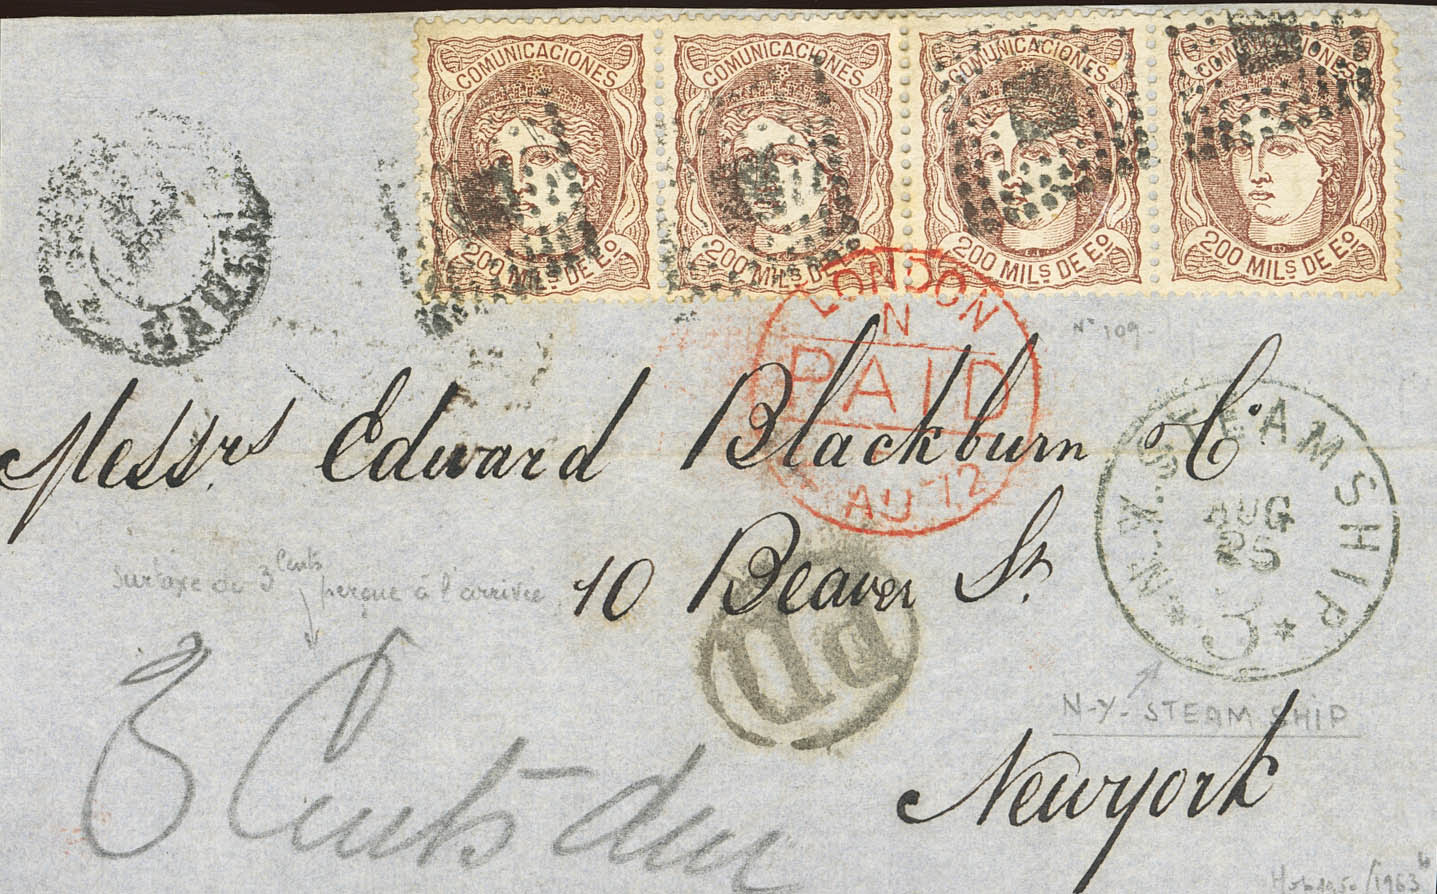 COMUNICACIONES COMUNICACIONES COMUNICACIONES COMUNICACIONES
200 MILS DE EO 200 MILS DE EO 200 MILS DE EO 200 MILS DE EO
LONDON
N
PAID
AU 72
Nº 109
Messrs Edward Blackburn & Cº
10 Beaver St.
Newyork
N.Y. STEAMSHIP
AUG
25
3
surtaxe de 3 Cents
perçue à l'arrivée
3 Cents due
PD
N-Y- STEAM SHIP
1963